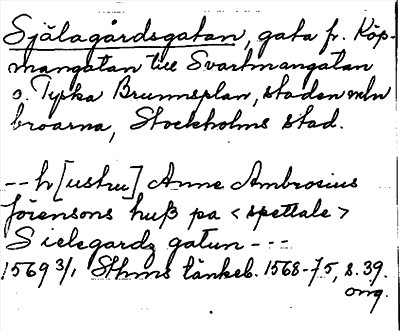 Själagårdsgatan, gata fr. Köp-
mangatan till Svartmangatan
o. Tyska Brunnsplan, staden mln
broarna, Stockholms stad.
-- h[ustru] Anne Ambrosius
Jörensons huß pa <spettale>
Sielegardz gatun ---
1569 3/1 Sthms tänkeb. 1568-75, s. 39.
orig.